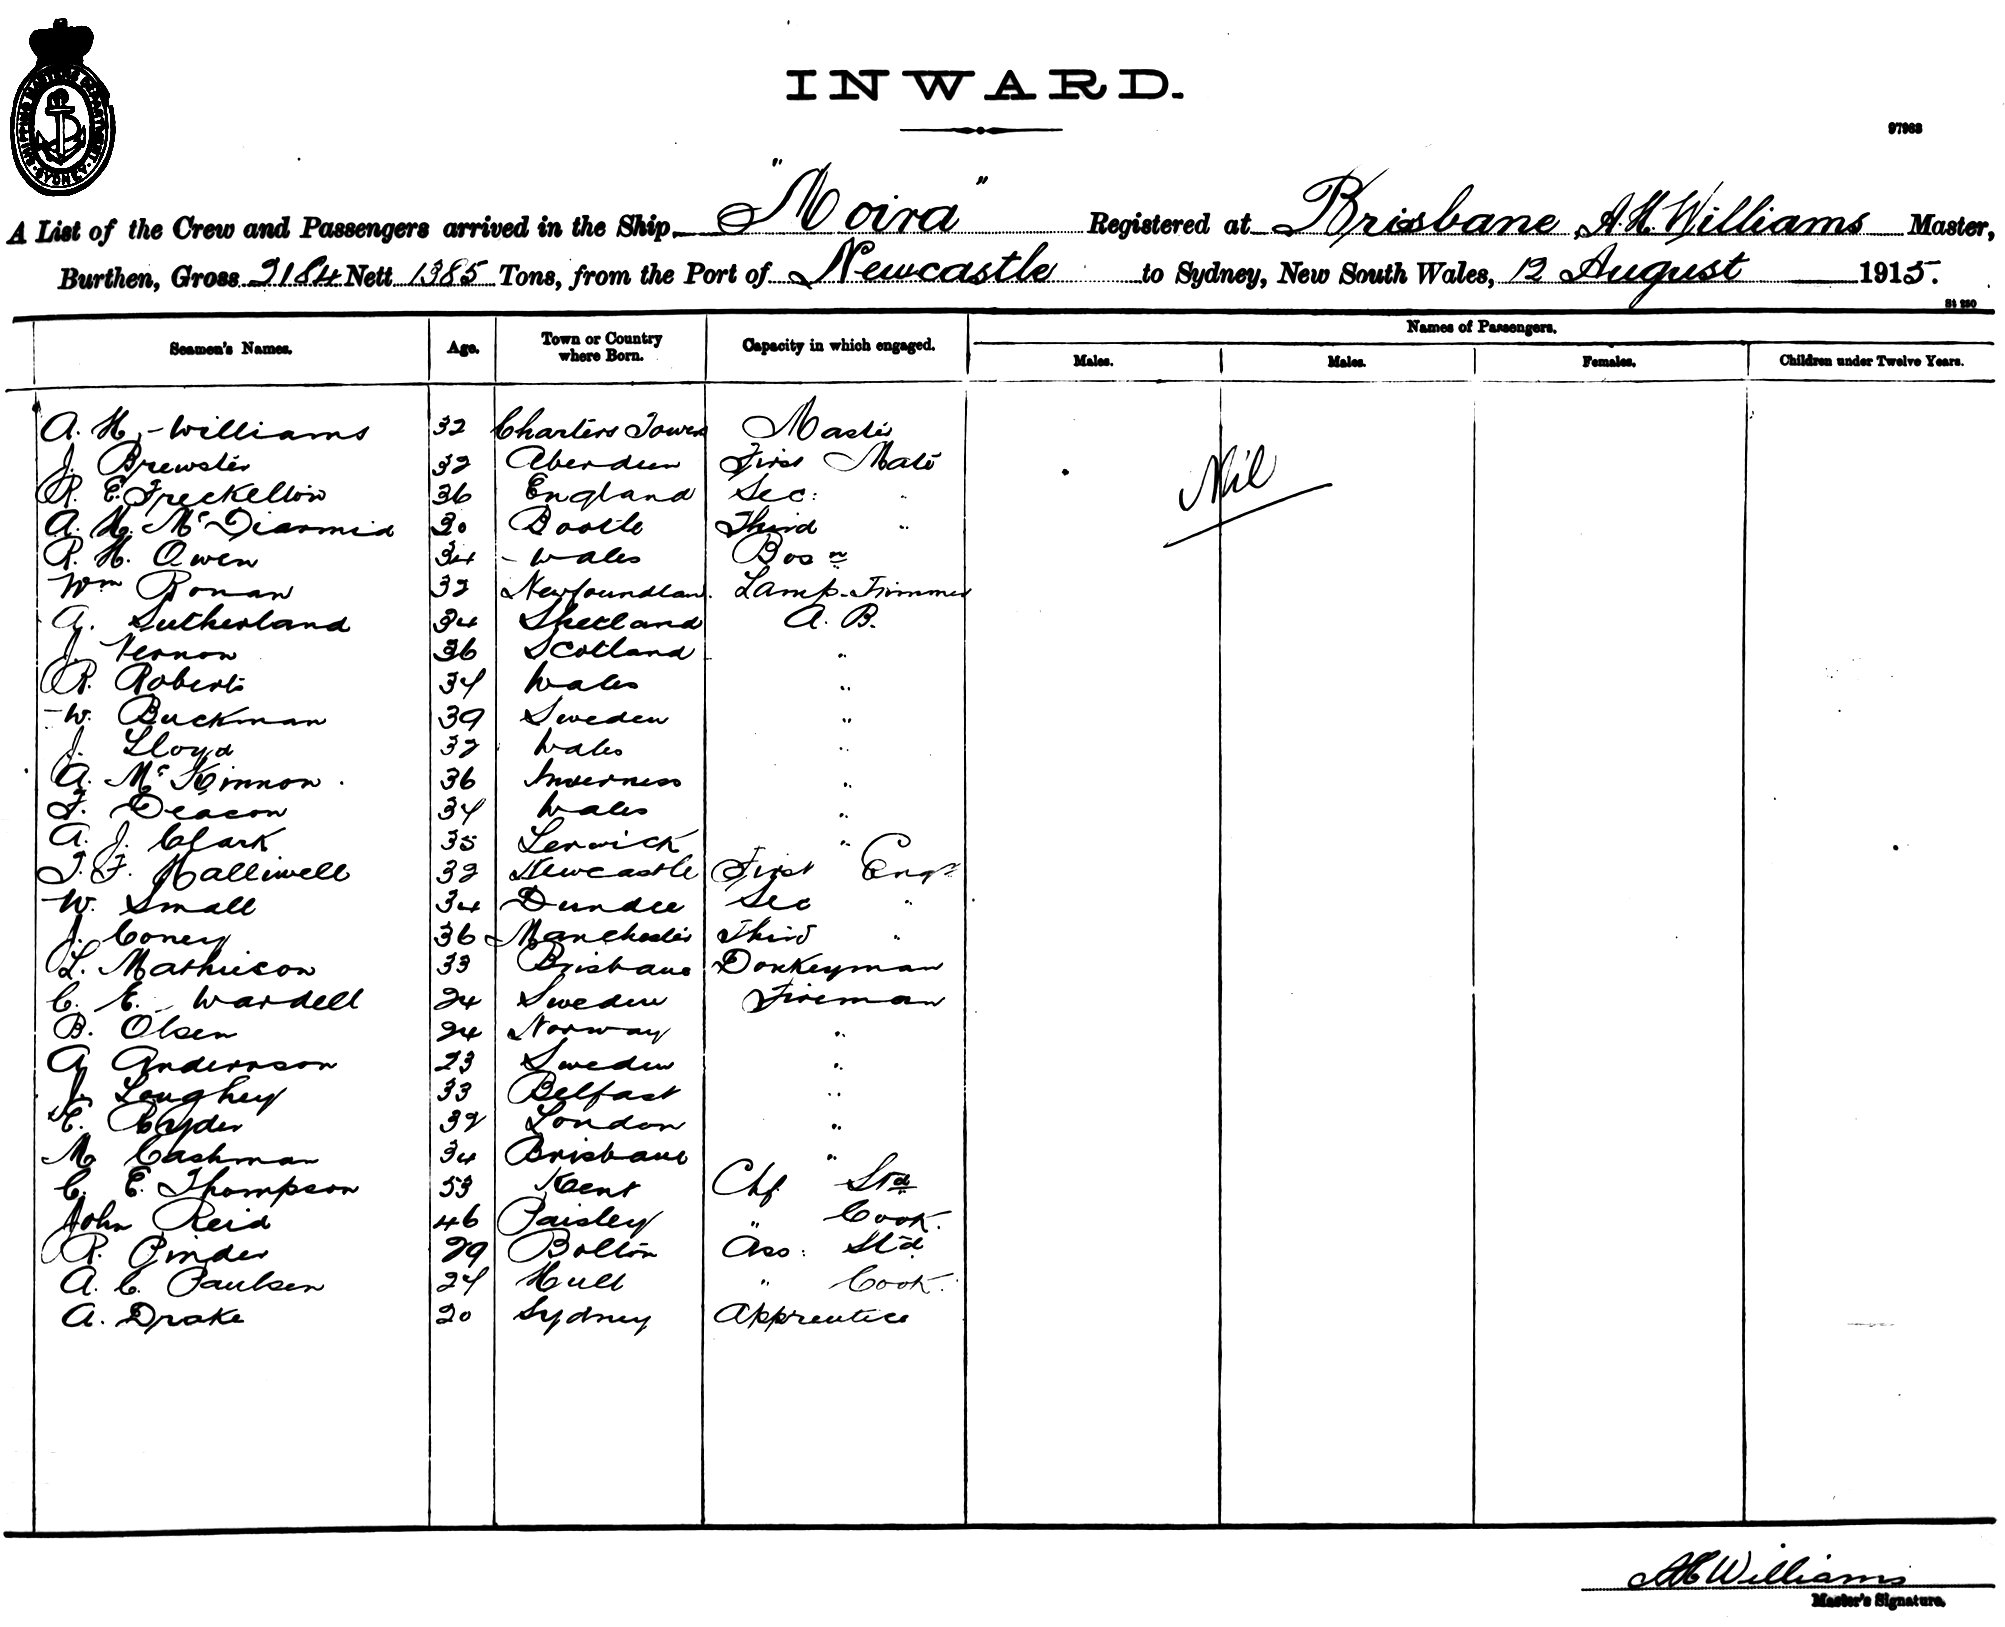 SHIPPING MASTERS DEPARTMENT SYDNEY
INWARD.
97963
A List of the Crew and Passengers arrived in the Ship "Moira" Registered at Brisbane, A. H. Williams Master,
Burthen, Gross 2184 Nett 1385 Tons, from the Port of Newcastle to Sydney, New South Wales, 12 August 1915.
St 250
Seamen's Names. Age. Town or Country where Born. Capacity in which engaged. Names of Passengers.
Males. Males. Females. Children under Twelve Years.
A. H. Williams 32 Charters Towers Master
J. Brewster 32 Aberdeen First Mate
R. E. Freckelton 36 England Sec: "
A. H. McDiarmid 30 Bootle Third "
R. H. Owen 34 Wales Bosn
Wm Ronan 32 Newfoundland. Lamp-Trimmer
A. Sutherland 34 Shetland A. B.
J. Vernon 36 Scotland "
R. Roberts 34 Wales "
W. Buckman 39 Sweden "
J. Lloyd 32 Wales "
A. McKinnon 36 Inverness "
F. Deacon 34 Wales "
A. J. Clark 35 Lerwick "
T. F. Halliwell 32 Newcastle First Engr
W. Small 34 Dundee Sec "
J. Coney 36 Manchester Third "
L. Mathieson 33 Brisbane Donkeyman
C. E. Wardell 24 Sweden Fireman
B. Olsen 24 Norway "
A. Andernson 23 Sweden "
J. Loughey 33 Belfast "
E. Ryder 32 London "
M Cashman 34 Brisbane "
C. E. Thompson 53 Kent Chf Std
John Reid 46 Paisley " Cook.
R. Pinder 29 Bolton Ass: Std
A. C. Paulsen 24 Hull " Cook.
A. Drake 20 Sydney Apprentice
Nil
A H Williams
Master's Signature.